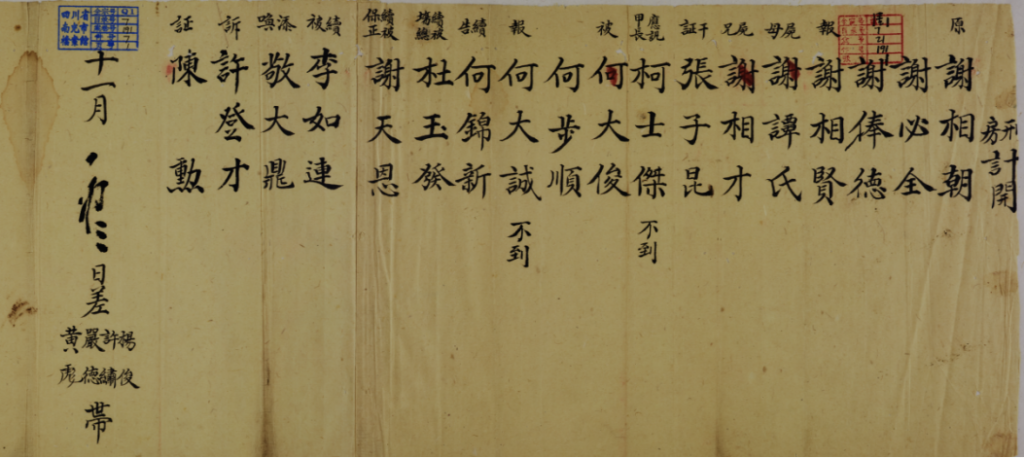 刑房計開
原 謝相朝
謝必全
謝俸德
報 謝相賢
屍母 謝譚氏
屍兄 謝相才
干証 張子昆
應説甲長 柯士傑 不到
被 何大俊
何步順
報 何大誠 不到
續告 何錦新
續被場總 杜玉發
續被保正 謝天恩
續被 李如連
添喚 敬大鼎
訴 許登才
証 陳勲
十一月 日差 楊俊 許繡 嚴德 黃 帶
四川省 南充 檔案館